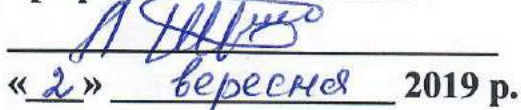 « 2 » вересня 2019 р.